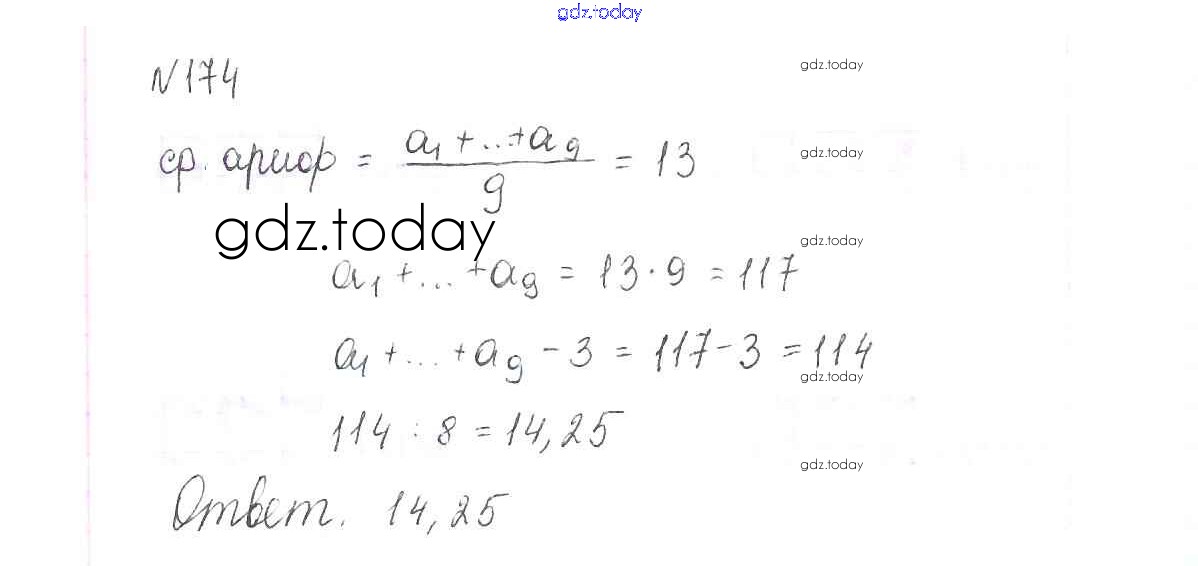 gdz.today
N 174
gdz.today
ср. арифр = a₁ + ... + a₉ / 9 = 13
gdz.today
gdz.today
gdz.today
a₁ + ... + a₉ = 13 · 9 = 117
a₁ + ... + a₉ - 3 = 117 - 3 = 114
gdz.today
114 : 8 = 14,25
gdz.today
Ответ. 14,25